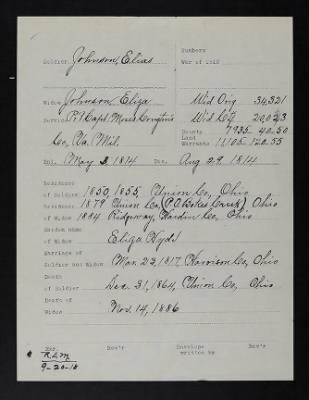 Numbers
Soldier Johnson, Elias War of 1812
Widow Johnson, Eliza Wid Orig. 34,321
Service Pvt Capt. Moses Wid Ctf. 20,023
Bounty 7935-40-50
Co., Va. Mil. Land Warrants 11105-120-55
Enl. May 2 1814 Dis. Aug 29 1814
Residence
of Soldier 1850, 1855, Union Co., Ohio
Residence 1879 Union Co., (P.O. Bokes Creek), Ohio
of Widow 1884 Ridgeway, Hardin Co., Ohio
Maiden name
of Widow Eliza Hyde
Marriage of
Soldier and Widow Mar. 22, 1817, Harrison Co., Ohio
Death
of Soldier Dec. 31, 1864, Union Co., Ohio
Death of
Widow Nov. 14, 1886
Rec. Rev'r Envelope Rev'r
written by
R.L.M.
9-20-18